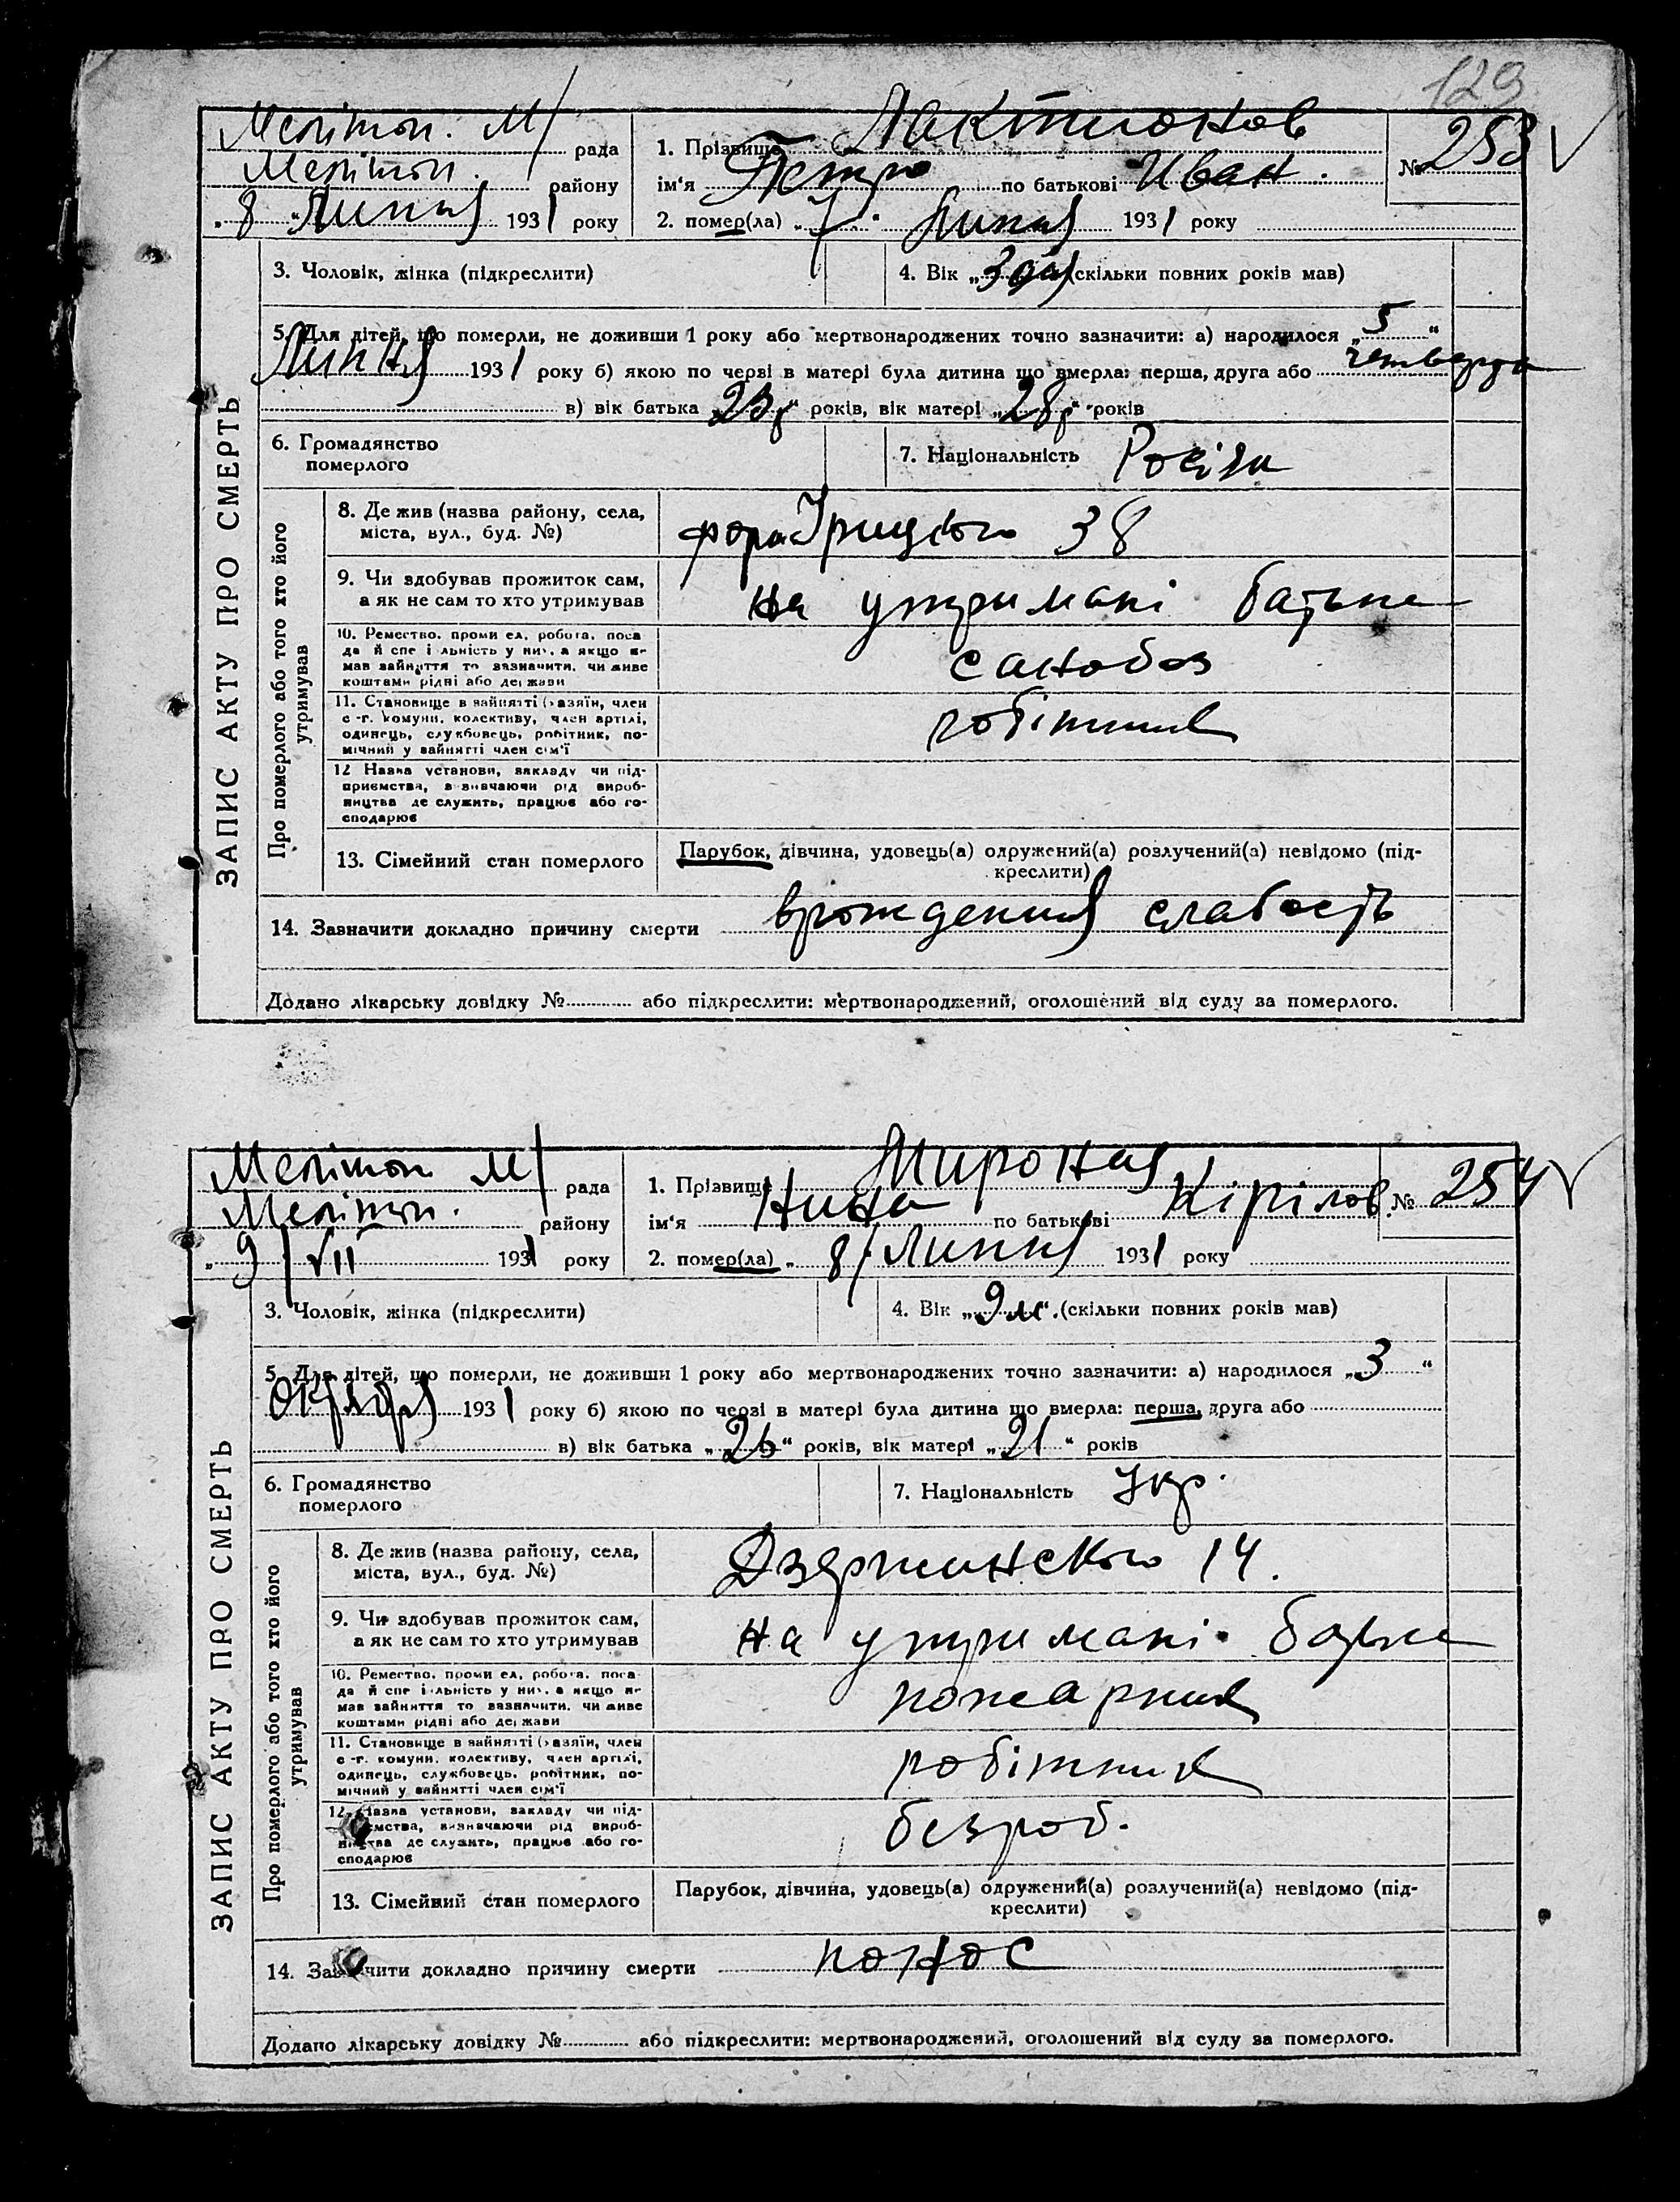 129
Мелітоп. М/ рада
Мелітоп. району
„8" Липня 1931 року
1. Прізвище Лактионов
ім'я Петро по батькові Иван.
№ 253 V
2. помер(ла) „7" Липня 1931 року
3. Чоловік, жінка (підкреслити)
4. Вік „3 дня" (скільки повних років мав)
5. Для дітей, що померли, не доживши 1 року або мертвонароджених точно зазначити: а) народилося „5"
Липня 1931 року б) якою по черзі в матері була дитина що вмерла: перша, друга або четверта
в) вік батька „23р" років, вік матері „28р" років
6. Громадянство
померлого
7. Національність Росіян
ЗАПИС АКТУ ПРО СМЕРТЬ
Про померлого або того хто його
утримував
8. Де жив (назва району, села,
міста, вул., буд. №)
Урицького 38
9. Чи здобував прожиток сам,
а як не сам то хто утримував
на утримані батька
10. Ремество, промисел, робота, поса
да й спеціальність у них, а якщо не
мав зайняття то зазначити, чи живе
коштами рідні або держави
санобоз
11. Становище в зайнятті (хазяїн, член
с-г. комуни, колективу, член артілі,
одинець, службовець, робітник, по-
мічний у зайнятті член сім'ї
робітник
12 Назва установи, закладу чи під-
приємства, визначаючи рід вироб-
ництва де служить, працює або го-
сподарює
13. Сімейний стан померлого
Парубок, дівчина, удовець(а) одружений(а) розлучений(а) невідомо (під-
креслити)
14. Зазначити докладно причину смерти врождения слабость
Додано лікарську довідку № або підкреслити: мертвонароджений, оголошений від суду за померлого.
Мелітоп М/ рада
Мелітоп. району
„9/VII 1931 року
1. Прізвище Мироная
ім'я Нина по батькові Кірілов.
№ 254 V
2. помер(ла) „8/Липня 1931 року
3. Чоловік, жінка (підкреслити)
4. Вік „9м". (скільки повних років мав)
5. Для дітей, що померли, не доживши 1 року або мертвонароджених точно зазначити: а) народилося „3"
Октября 1931 року б) якою по черзі в матері була дитина що вмерла: перша, друга або
в) вік батька „26" років, вік матері „21" років
6. Громадянство
померлого
7. Національність Укр.
ЗАПИС АКТУ ПРО СМЕРТЬ
Про померлого або того хто його
утримував
8. Де жив (назва району, села,
міста, вул., буд. №)
Дзержинського 14.
9. Чи здобував прожиток сам,
а як не сам то хто утримував
на утримані батька
10. Ремество, промисел, робота, поса
да й спеціальність у них, а якщо не
мав зайняття то зазначити, чи живе
коштами рідні або держави
пожарник
11. Становище в зайнятті (хазяїн, член
с-г. комуни, колективу, член артілі,
одинець, службовець, робітник, по-
мічний у зайнятті член сім'ї
робітник
12. Назва установи, закладу чи під-
приємства, визначаючи рід вироб-
ництва де служить, працює або го-
сподарює
безроб.
13. Сімейний стан померлого
Парубок, дівчина, удовець(а) одружений(а) розлучений(а) невідомо (під-
креслити)
14. Зазначити докладно причину смерти понос
Додано лікарську довідку № або підкреслити: мертвонароджений, оголошений від суду за померлого.